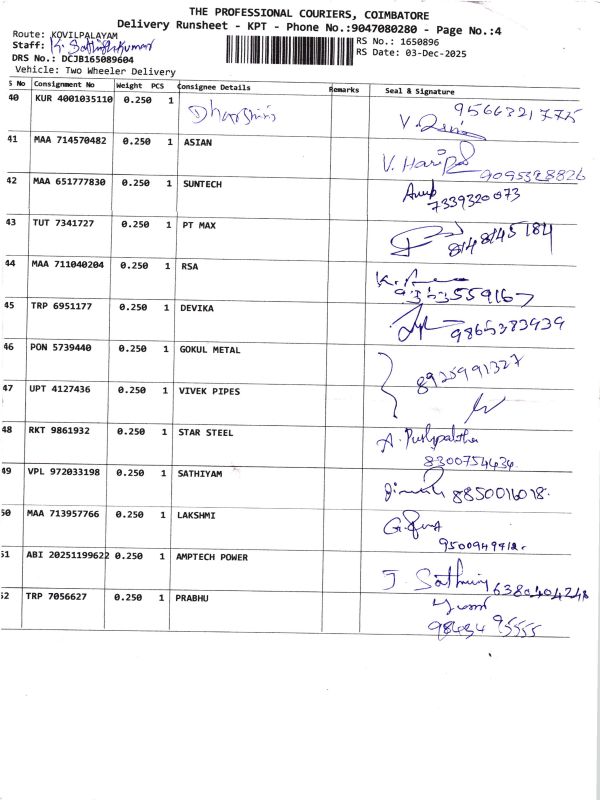 THE PROFESSIONAL COURIERS, COIMBATORE
Delivery Runsheet - KPT - Phone No.:9047080280 - Page No.:4
Route: KOVILPALAYAM
RS No.: 1650896
Staff: K. Sathishkumar
RS Date: 03-Dec-2025
DRS No.: DCJB165089604
Vehicle: Two Wheeler Delivery
S No Consignment No Weight PCS Consignee Details Remarks Seal & Signature
40 KUR 4001035110 0.250 1 Dharshini 9566321775
41 MAA 714570482 0.250 1 ASIAN V. Hari 9095328826
42 MAA 651777830 0.250 1 SUNTECH 7339320073
43 TUT 7341727 0.250 1 PT MAX 8148145184
44 MAA 711040204 0.250 1 RSA
45 TRP 6951177 0.250 1 DEVIKA 9865383939
46 PON 5739440 0.250 1 GOKUL METAL 8925991327
47 UPT 4127436 0.250 1 VIVEK PIPES
48 RKT 9861932 0.250 1 STAR STEEL A. Pushpalatha 8300754434
49 VPL 972033198 0.250 1 SATHIYAM 8850016018.
50 MAA 713957766 0.250 1 LAKSHMI
51 ABI 20251199622 0.250 1 AMPTECH POWER J.
52 TRP 7056627 0.250 1 PRABHU 98434 95555